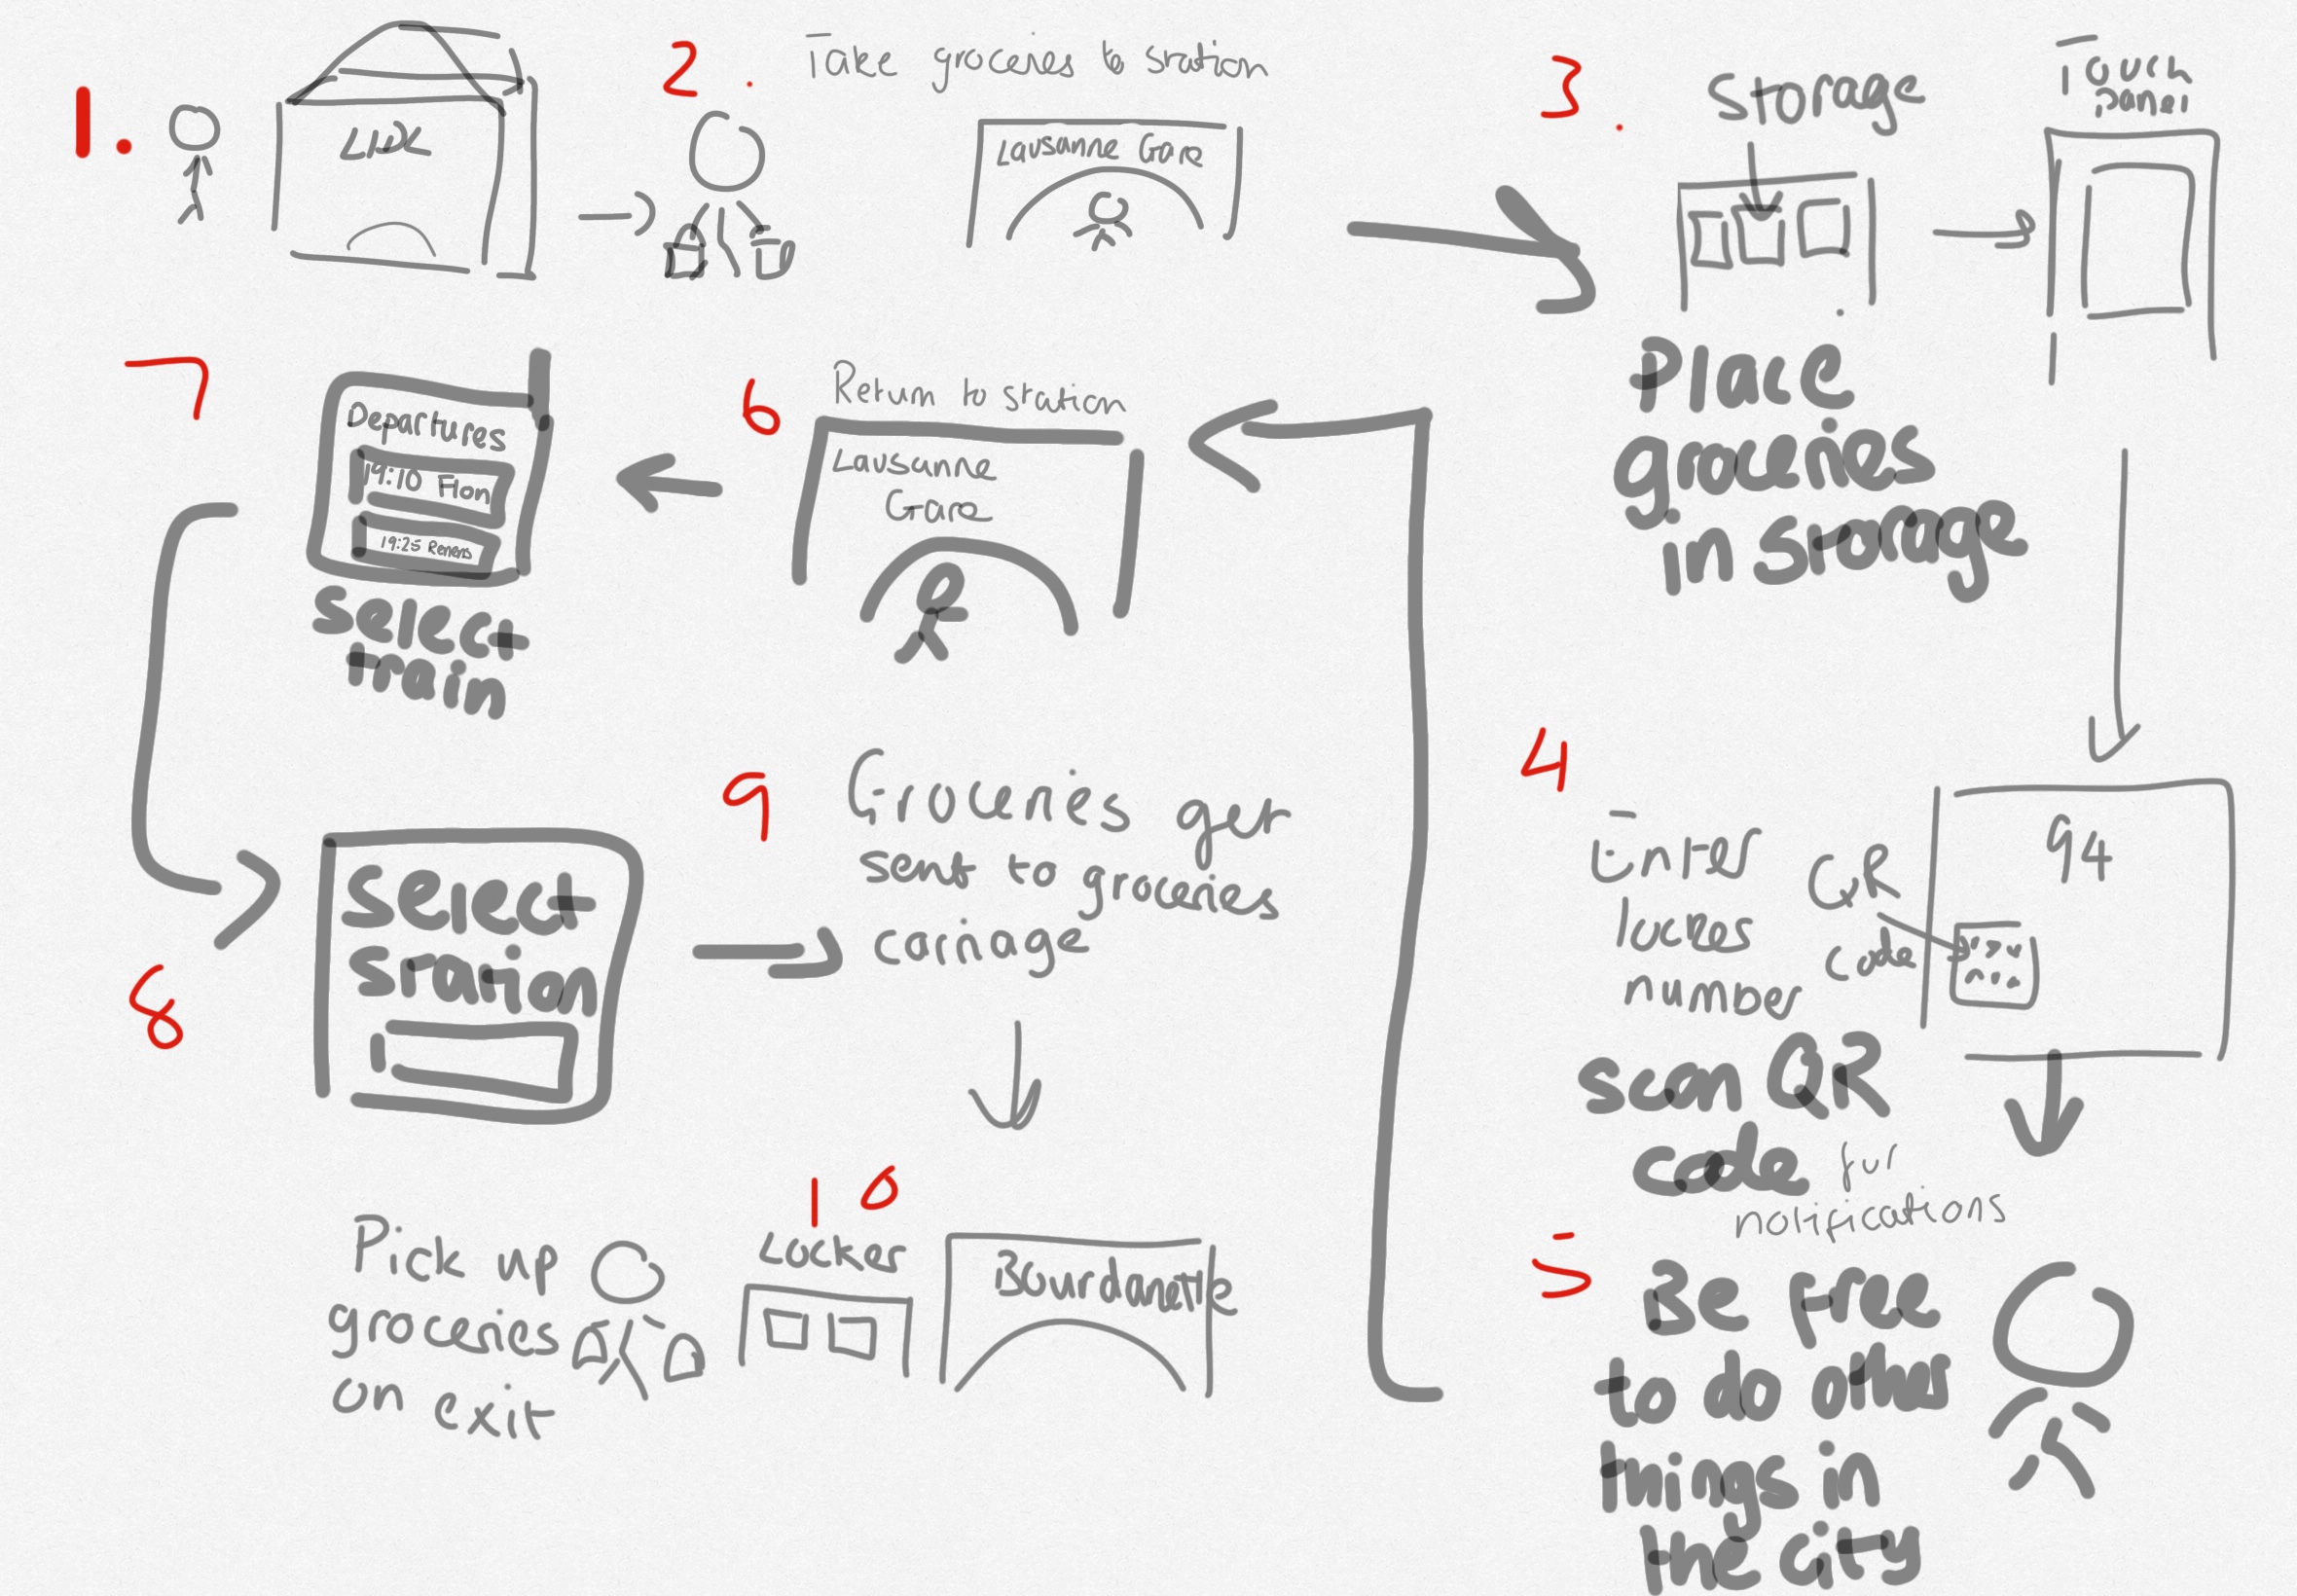 1.
LIDL
2.
Take groceries to station
Lausanne Gare
3.
Storage
Touch
panel
Place
groceries
in storage
4
Enter
locker
number
QR
code
94
scan QR
code for
notifications
5
Be free
to do other
things in
the city
6
Return to station
Lausanne
Gare
7
Departures
19:10 Flon
19:25 Renens
select
train
8
select
station
9
Groceries get
sent to groceries
carriage
10
Locker
Bourdanette
Pick up
groceries
on exit